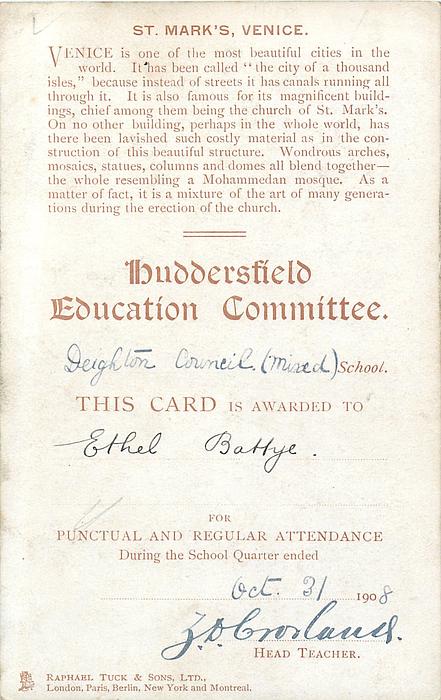 ST. MARK'S, VENICE.
VENICE is one of the most beautiful cities in the
world. It has been called "the city of a thousand
isles," because instead of streets it has canals running all
through it. It is also famous for its magnificent build-
ings, chief among them being the church of St. Mark's.
On no other building, perhaps in the whole world, has
there been lavished such costly material as in the con-
struction of this beautiful structure. Wondrous arches,
mosaics, statues, columns and domes all blend together—
the whole resembling a Mohammedan mosque. As a
matter of fact, it is a mixture of the art of many genera-
tions during the erection of the church.
Huddersfield
Education Committee.
Deighton Council. (Mixed) School.
THIS CARD IS AWARDED TO
Ethel Battye.
FOR
PUNCTUAL AND REGULAR ATTENDANCE
During the School Quarter ended
Oct. 31 1908
Crosland.
HEAD TEACHER.
RAPHAEL TUCK & SONS, LTD.,
London, Paris, Berlin, New York and Montreal.